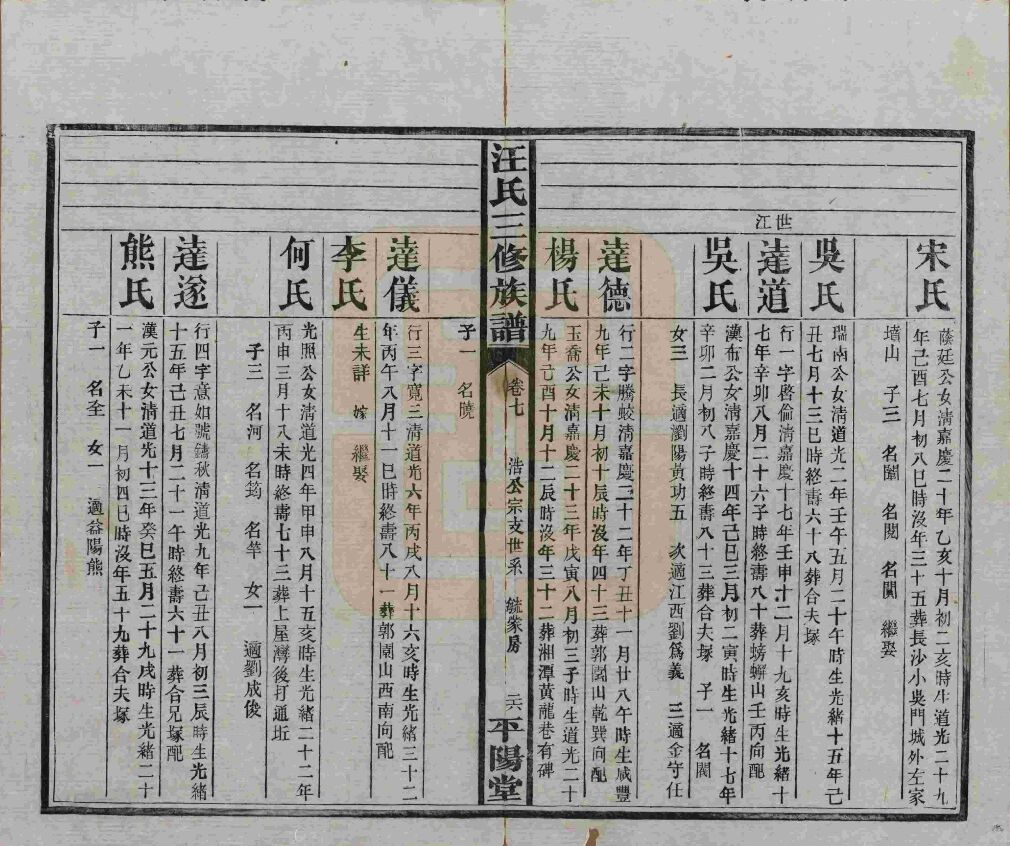 世
江
宋氏
蔭廷公女淸嘉慶二十年乙亥十月初二亥時生道光二十九
年己酉七月初八巳時沒年三十五葬長沙小吳門城外左家
墻山 子三 名闈 名閱 名闐 繼娶
吳氏
瑞南公女淸道光二年壬午五月二十午時生光緖十五年己
丑七月十三巳時終壽六十八葬合夫塚
達道
行一字啓倫淸嘉慶十七年壬申十二月十九亥時生光緖十
七年辛卯八月二十六子時終壽八十葬螃蠏山壬丙向配
吳氏
漢布公女淸嘉慶十四年己巳三月初二寅時生光緖十七年
辛卯二月初八子時終壽八十三葬合夫塚 子一 名閡
女三 長適瀏陽黃功五 次適江西劉爲義 三適金守仕
達德
行二字騰蛟淸嘉慶二十二年丁丑十一月廿八午時生咸豐
九年己未十月初十辰時沒年四十三葬郭園山乾巽向配
楊氏
玉喬公女淸嘉慶二十三年戊寅八月初三子時生道光二十
九年己酉十月十二辰時沒年三十二葬湘潭黃龍巷有碑
汪氏三修族譜 卷七 浩公宗支世系 毓蒙房 二六 平陽堂
子一 名曉
達儀
行三字寬三淸道光六年丙戌八月十六亥時生光緖三十二
年丙午八月十一巳時終壽八十一葬郭園山西南向配
李氏
生未詳 嫁 繼娶
何氏
光照公女淸道光四年甲申八月十五亥時生光緖二十二年
丙申三月十八未時終壽七十三葬上屋灣後打通坵
子三 名河 名筠 名竿 女一 適劉成俊
達遂
行四字意如號鑄秋淸道光九年己丑八月初三辰時生光緖
十五年己丑七月二十一午時終壽六十一葬合兄塚配
熊氏
漢元公女淸道光十三年癸巳五月二十九戌時生光緖二十
一年乙未十一月初四巳時沒年五十九葬合夫塚
子一 名全 女一 適益陽熊